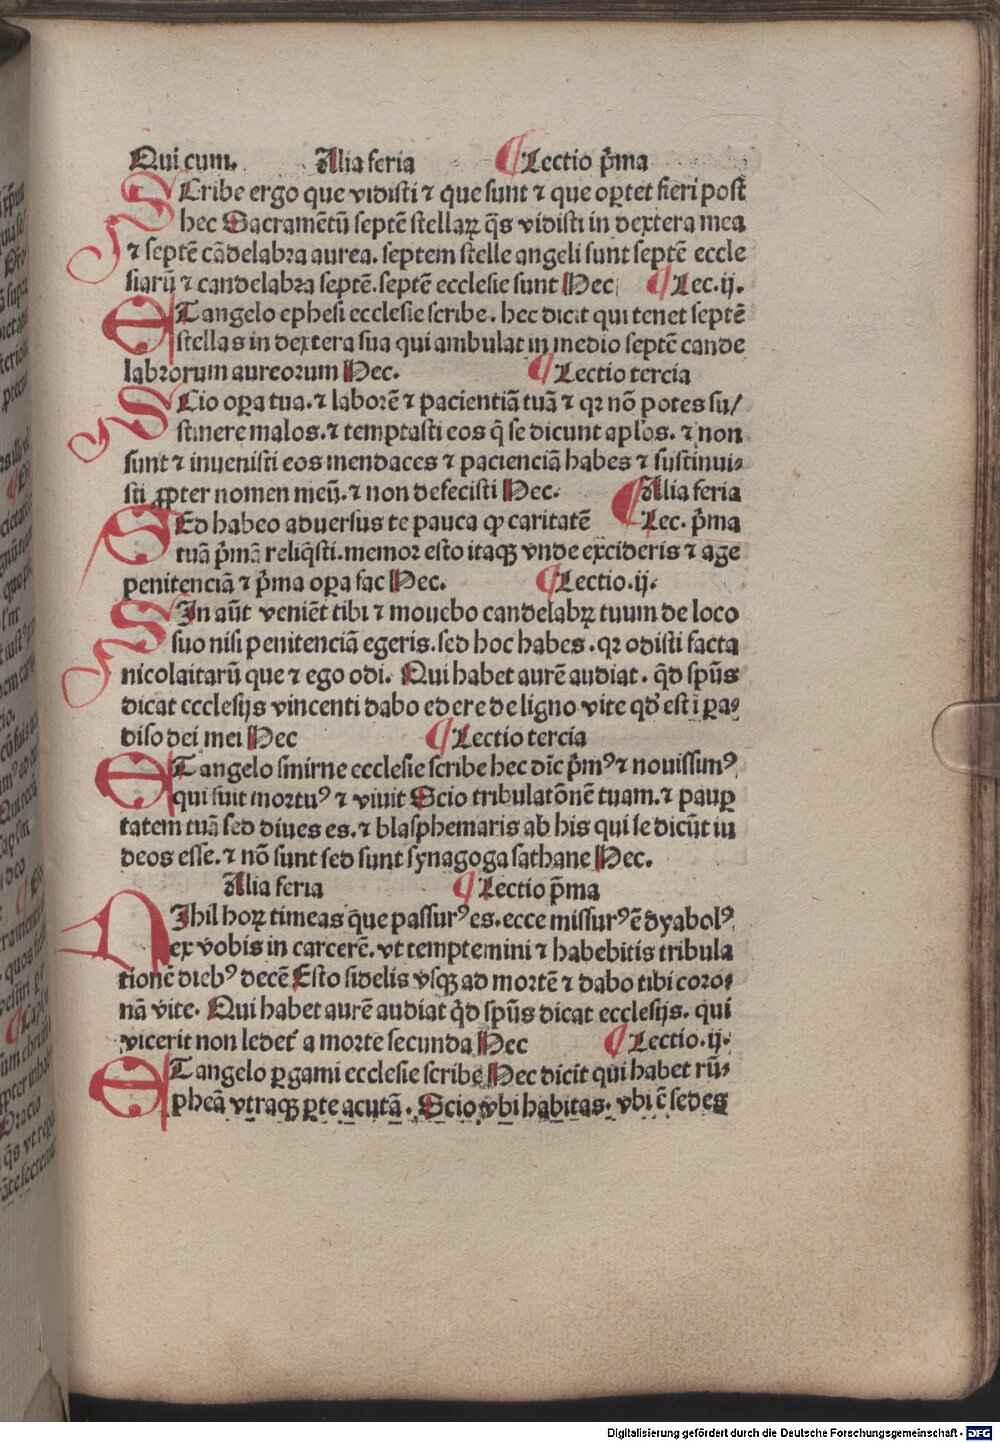 Qui cum. Alia feria ¶ Lectio p̄ma
SCribe ergo que vidisti ⁊ que sunt ⁊ que oꝑtet fieri post
hec Sacramētū septē stellaꝝ q̄s vidisti in dextera mea
⁊ septē cādelabra aurea. septem stelle angeli sunt septē eccle
siarū ⁊ candelabra septē. septē ecclesie sunt Hec ¶ Lec. ij.
ET angelo ephesi ecclesie scribe. hec dicit qui tenet septē
stellas in dextera sua qui ambulat in medio septē cande
labrorum aureorum Hec. ¶ Lectio tercia
SCio oꝑa tua. ⁊ laborē ⁊ pacientiā tuā ⁊ qꝛ nō potes su/
stinere malos. ⁊ temptasti eos q̄ se dicunt aplōs. ⁊ non
sunt ⁊ inuenisti eos mendaces ⁊ pacienciā habes ⁊ sustinui⸗
sti ꝓpter nomen meū. ⁊ non defecisti Hec. ¶ Alia feria
SEd habeo aduersus te pauca ꝙ caritatē Lec. p̄ma
tuā p̄mā reliq̄sti. memor esto itaqꝫ vnde excideris ⁊ age
penitenciā ⁊ p̄ma oꝑa fac Hec. ¶ Lectio. ij.
SIn aūt veniēt tibi ⁊ mouebo candelabꝝ tuum de loco
suo nisi penitenciā egeris. sed hoc habes. qꝛ odisti facta
nicolaitarū que ⁊ ego odi. Qui habet aurē audiat. qd̄ spūs
dicat ecclesijs vincenti dabo edere de ligno vite qd̓ est ī ꝑa⸗
diso dei mei Hec ¶ Lectio tercia
ET angelo smirne ecclesie scribe hec dīc p̄mꝰ ⁊ nouissimꝰ
qui fuit mortuꝰ ⁊ viuit Scio tribulatōnē tuam. ⁊ pauꝑ
tatem tuā sed diues es. ⁊ blasphemaris ab his qui se dicūt iu
deos esse. ⁊ nō sunt sed sunt synagoga sathane Hec.
Alia feria ¶ Lectio p̄ma
NIhil hoꝝ timeas que passurꝰ es. ecce missurꝰ ē dyabolꝰ
ex vobis in carcerē. vt temptemini ⁊ habebitis tribula
tionē diebꝰ decē Esto fidelis vsqꝫ ad mortē ⁊ dabo tibi coro⸗
nā vite. Qui habet aurē audiat qd̄ spūs dicat ecclesijs. qui
vicerit non ledet̄ a morte secunda Hec ¶ Lectio. ij.
ET angelo ꝑgami ecclesie scribe Hec dicit qui habet rū⸗
pheā vtraqꝫ ꝑte acutā. Scio vbi habitas. vbi ē sedes
Digitalisierung gefördert durch die Deutsche Forschungsgemeinschaft - DFG